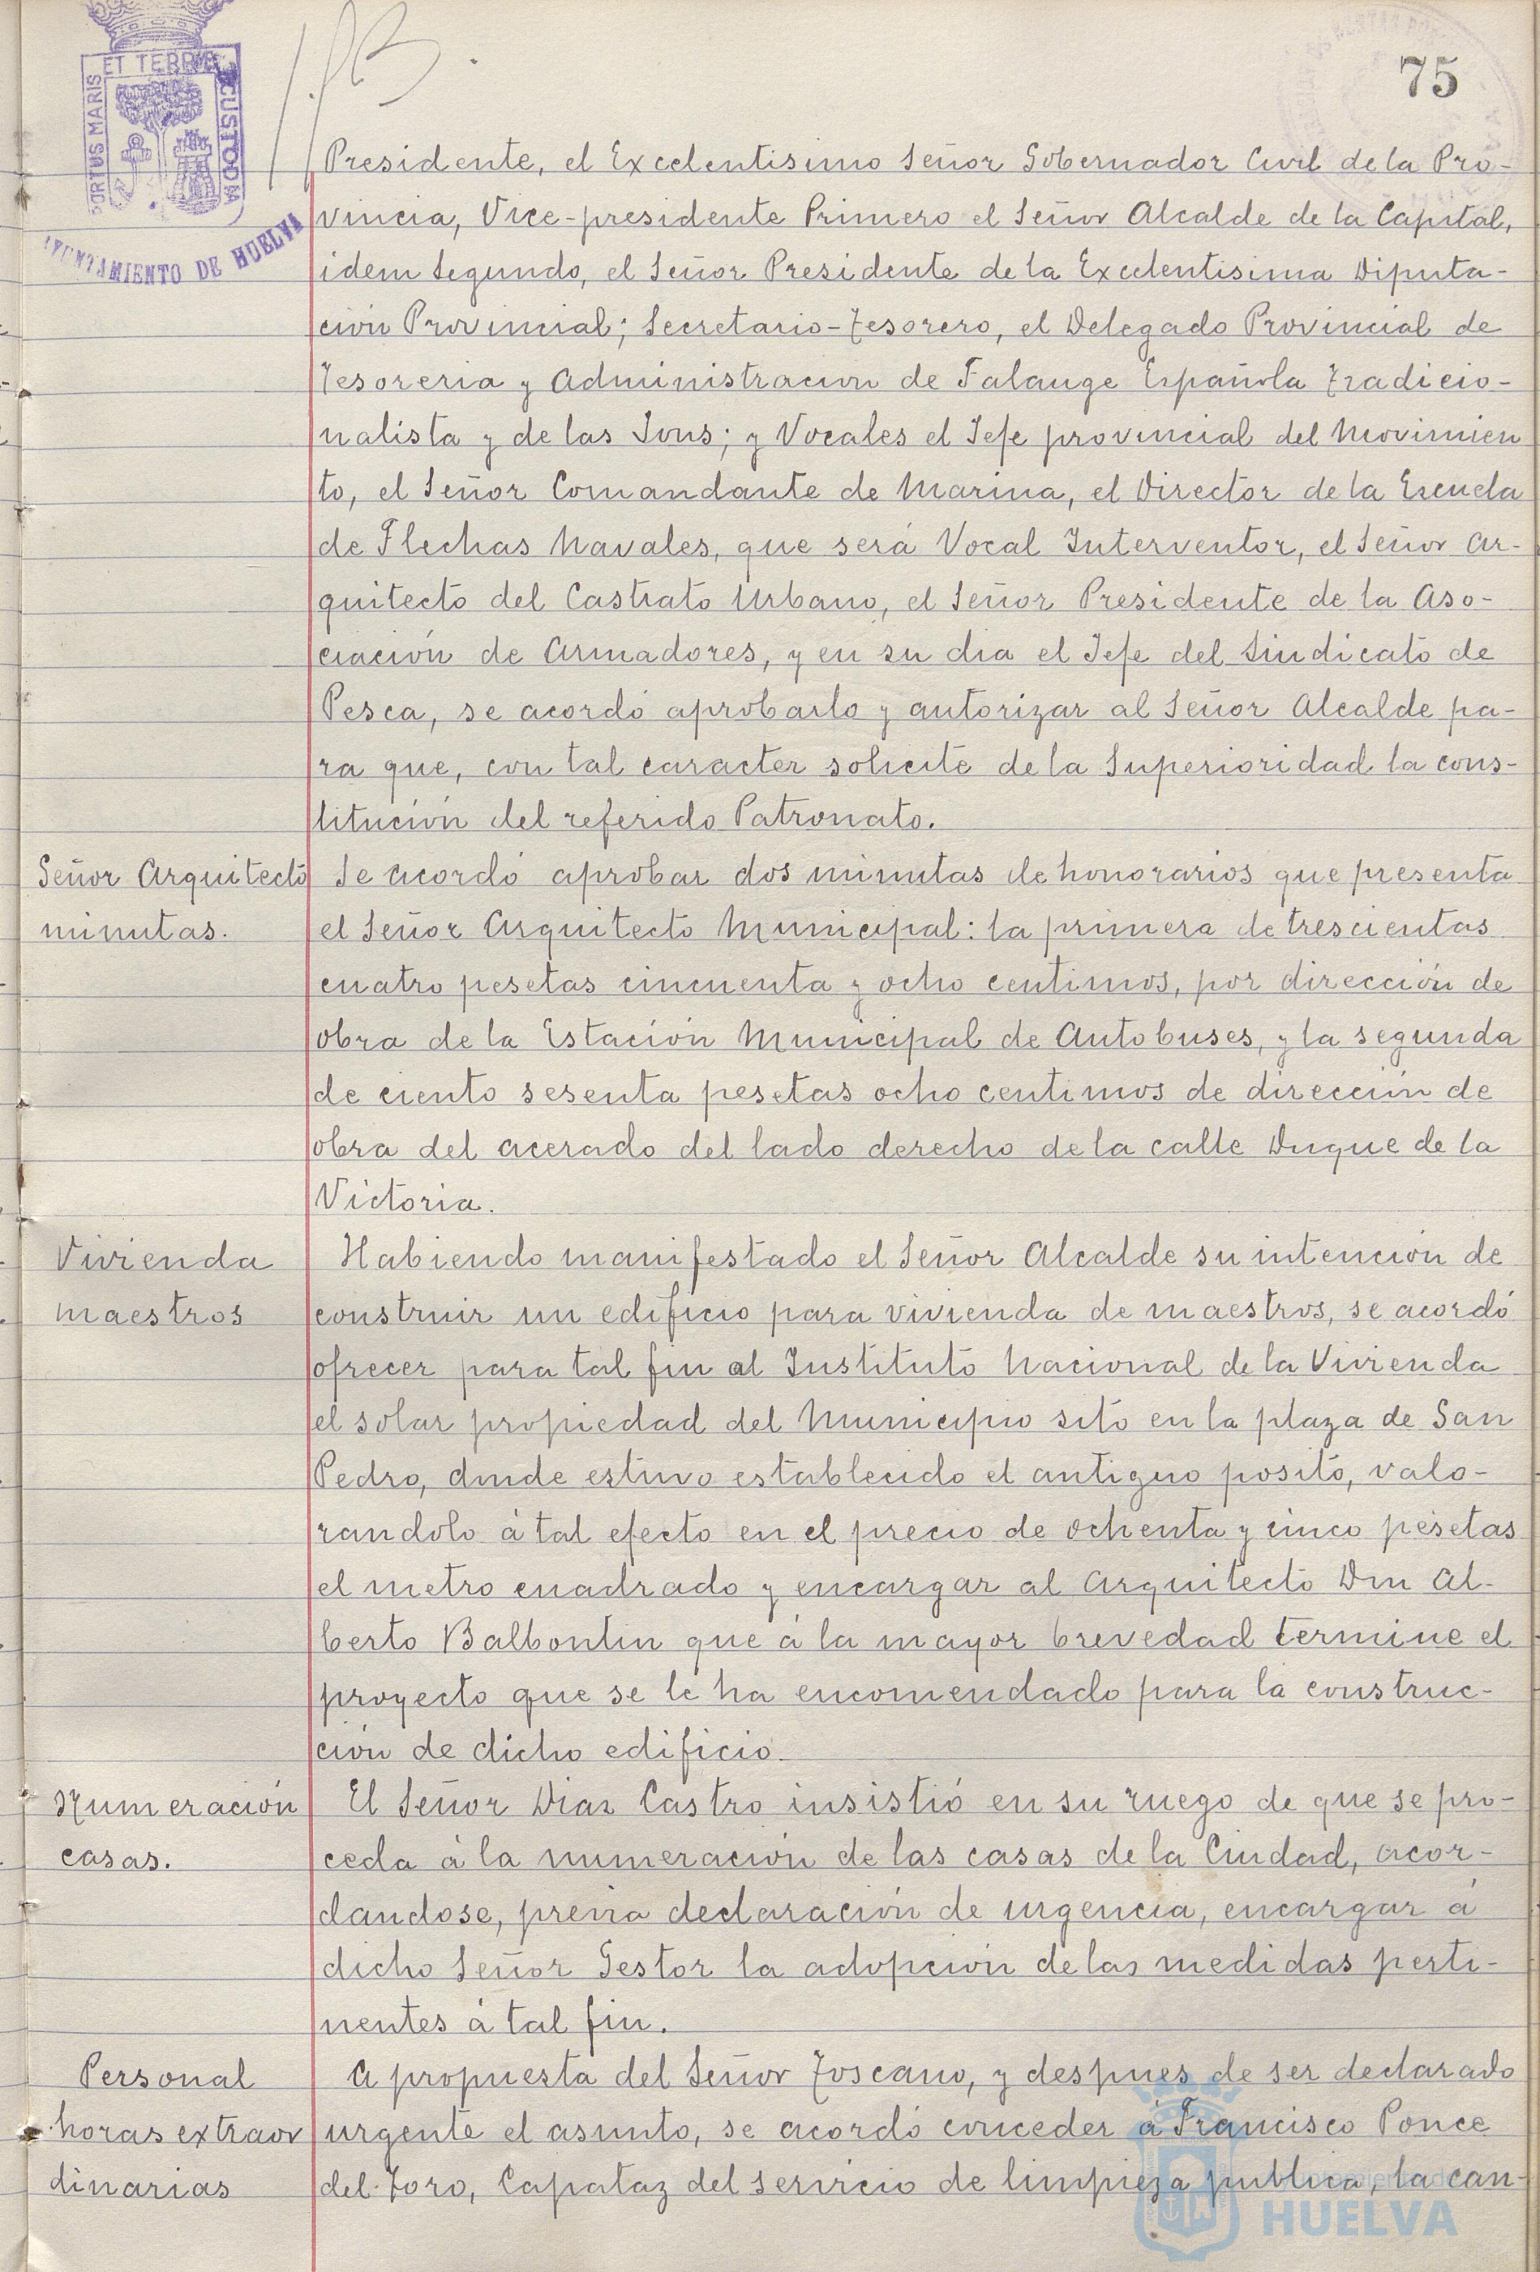 75
PORTUS MARIS ET TERRE CUSTODIA
AYUNTAMIENTO DE HUELVA
Presidente, el Excelentisimo Señor Gobernador Civil de la Pro-
vincia, Vice-presidente Primero el Señor Alcalde de la Capital,
idem Segundo, el Señor Presidente de la Excelentisima Diputa-
ción Provincial; Secretario-Tesorero, el Delegado Provincial de
Tesoreria y Administracion de Falange Española Tradicio-
nalista y de las Jons; y Vocales el Jefe provincial del Movimien
to, el Señor Comandante de Marina, el Director de la Escuela
de Flechas Navales, que será Vocal Interventor, el Señor Ar-
quitecto del Castrato Urbano, el Señor Presidente de la Aso-
ciación de Armadores, y en su dia el Jefe del Sindicato de
Pesca, se acordó aprobarlo y autorizar al Señor Alcalde pa-
ra que, con tal caracter solicite de la Superioridad la cons-
titución del referido Patronato.
Señor Arquitecto
minutas.
Se acordó aprobar dos minutas de honorarios que presenta
el Señor Arquitecto Municipal: la primera de trescientas
cuatro pesetas cincuenta y ocho centimos, por dirección de
obra de la Estación Municipal de Autobuses, y la segunda
de ciento sesenta pesetas ocho centimos de dirección de
obra del acerado del lado derecho de la calle Duque de la
Victoria.
Vivienda
maestros
Habiendo manifestado el Señor Alcalde su intención de
construir un edificio para vivienda de maestros, se acordó
ofrecer para tal fin al Instituto Nacional de la Vivienda
el solar propiedad del Municipio sito en la plaza de San
Pedro, donde estuvo establecido el antiguo posito, valo-
randolo á tal efecto en el precio de ochenta y cinco pesetas
el metro cuadrado y encargar al Arquitecto Don Al-
berto Balbontin que á la mayor brevedad termine el
proyecto que se le ha encomendado para la construc-
ción de dicho edificio.
Numeración
casas.
El Señor Diaz Castro insistió en su ruego de que se pro-
ceda á la numeración de las casas de la Ciudad, acor-
dandose, previa declaración de urgencia, encargar á
dicho Señor Gestor la adopción de las medidas perti-
nentes á tal fin.
Personal
horas extraor
dinarias
A propuesta del Señor Toscano, y despues de ser declarado
urgente el asunto, se acordó conceder á Francisco Ponce
del Toro, Capataz del servicio de limpieza publica, la can-
Ayuntamiento de
HUELVA